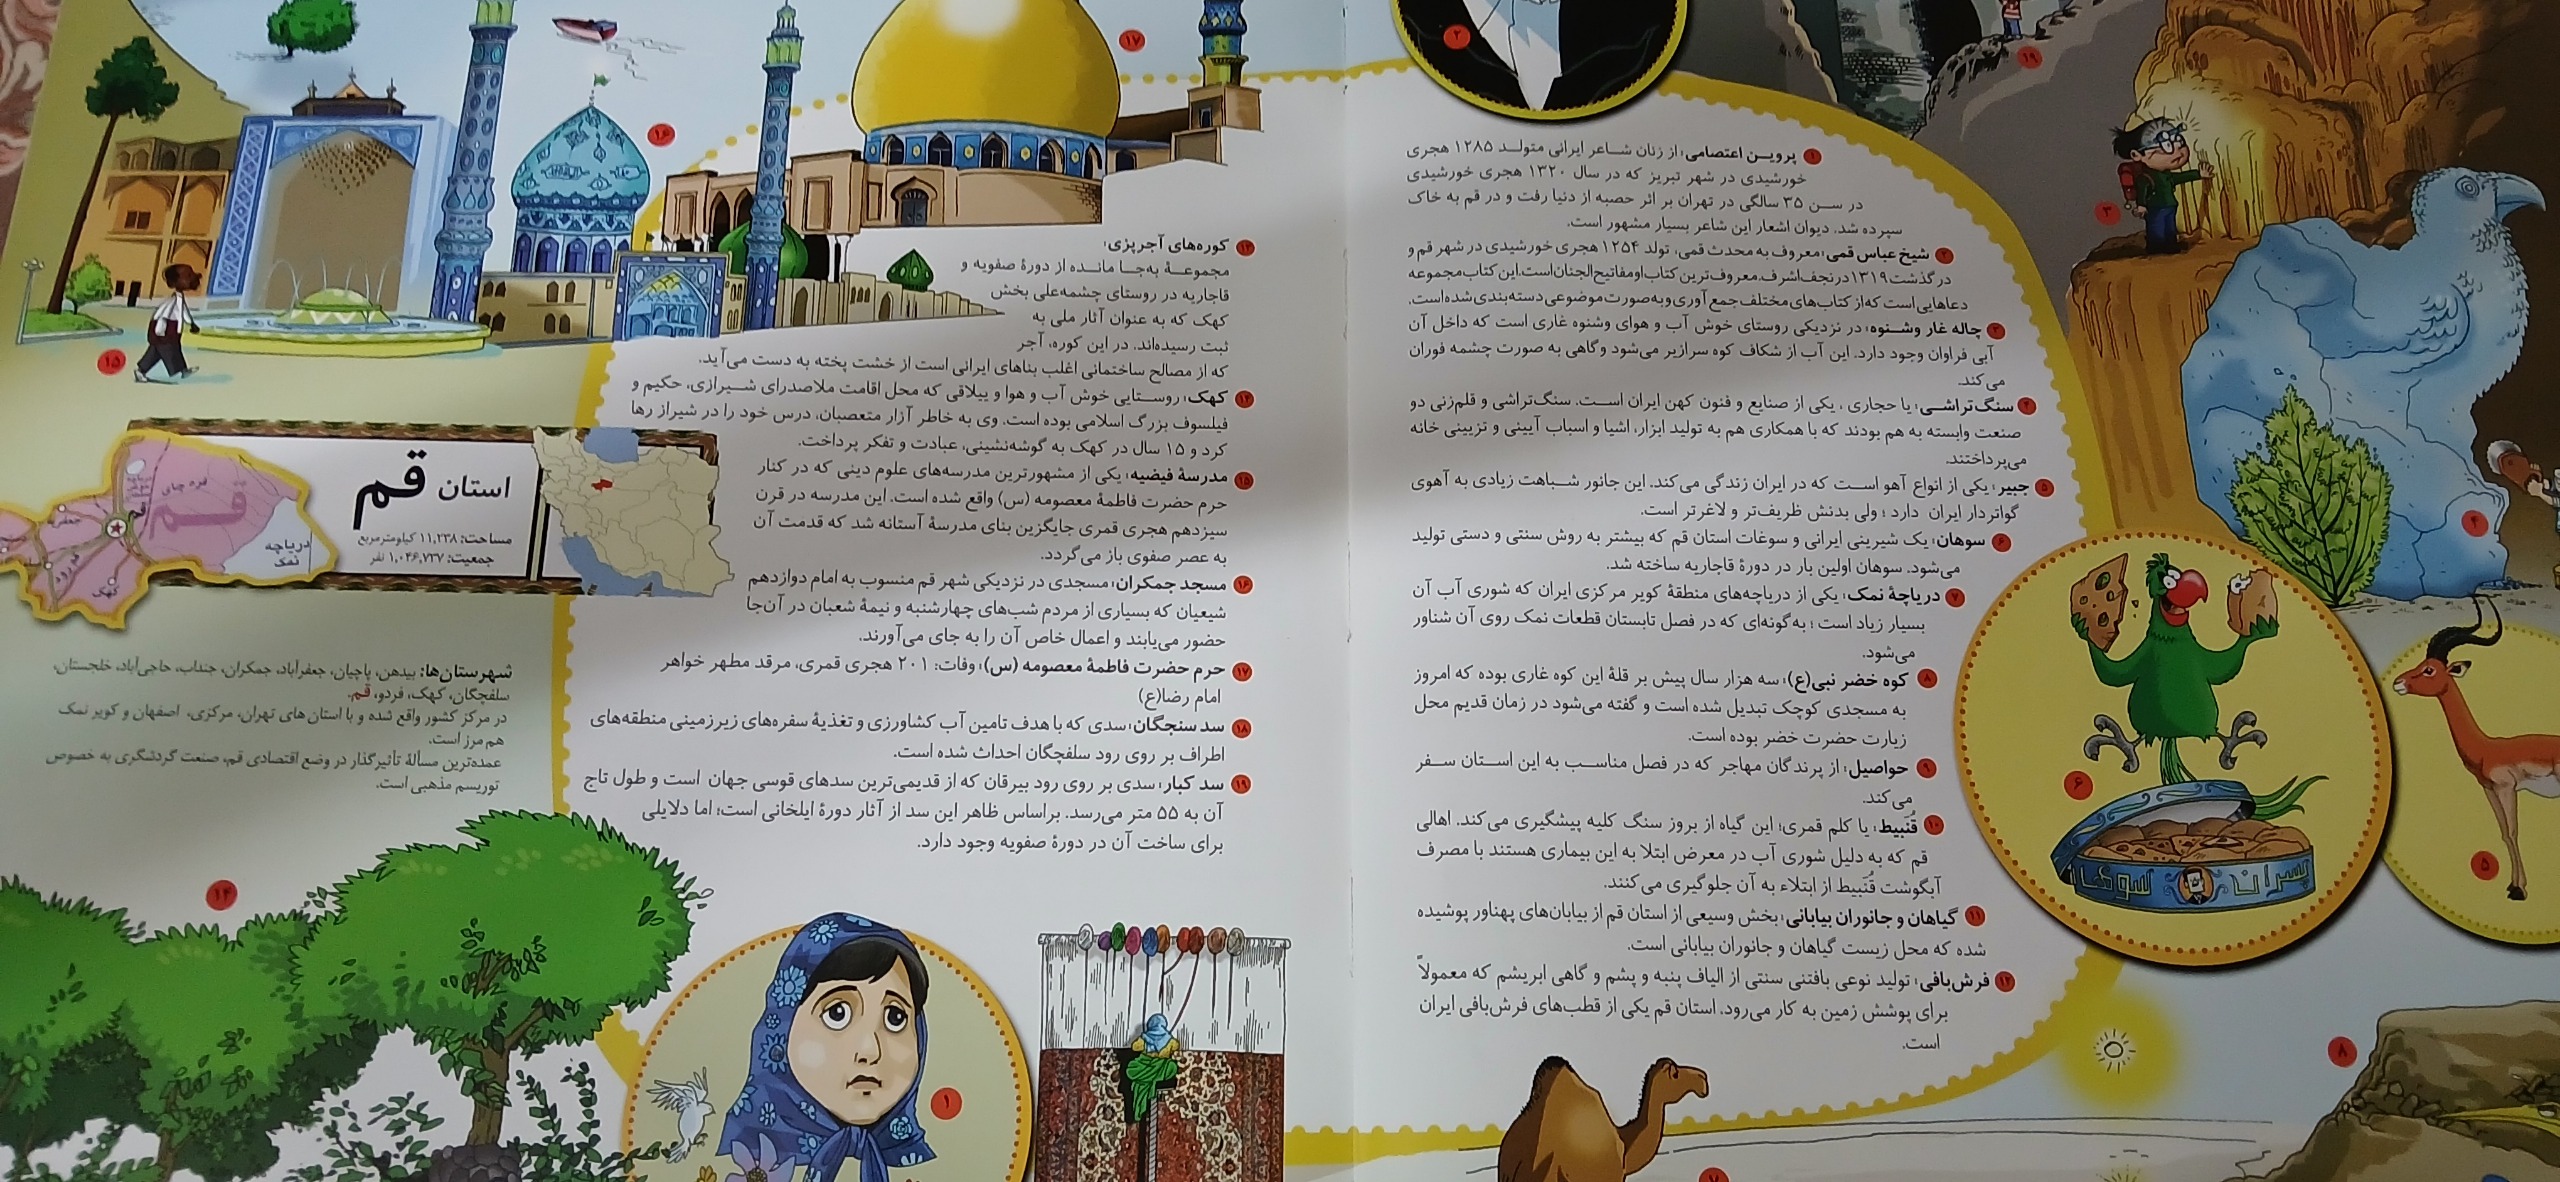 ۱ پروین اعتصامی: از زنان شاعر ایرانی متولد ۱۲۸۵ هجری
خورشیدی در شهر تبریز که در سال ۱۳۲۰ هجری خورشیدی
در سن ۳۵ سالگی در تهران بر اثر حصبه از دنیا رفت و در قم به خاک
سپرده شد. دیوان اشعار این شاعر بسیار مشهور است.
۲ شیخ عباس قمی: معروف به محدث قمی، تولد ۱۲۵۴ هجری خورشیدی در شهر قم و
درگذشت ۱۳۱۹ در نجف اشرف. معروف‌ترین کتاب او مفاتیح الجنان است. این کتاب مجموعه
دعاهایی است که از کتاب‌های مختلف جمع آوری و به صورت موضوعی دسته‌بندی شده است.
۳ چاله غار وشنوه: در نزدیکی روستای خوش آب و هوای وشنوه غاری است که داخل آن
آبی فراوان وجود دارد. این آب از شکاف کوه سرازیر می‌شود و گاهی به صورت چشمه فوران
می‌کند.
۴ سنگ‌تراشی: یا حجاری، یکی از صنایع و فنون کهن ایران است. سنگ‌تراشی و قلم‌زنی دو
صنعت وابسته به هم بودند که با همکاری هم به تولید ابزار، اشیا و اسباب آیینی و تزیینی خانه
می‌پرداختند.
۵ جبیر: یکی از انواع آهو است که در ایران زندگی می‌کند. این جانور شباهت زیادی به آهوی
گواتردار ایران دارد؛ ولی بدنش ظریف‌تر و لاغرتر است.
۶ سوهان: یک شیرینی ایرانی و سوغات استان قم که بیشتر به روش سنتی و دستی تولید
می‌شود. سوهان اولین بار در دورهٔ قاجاریه ساخته شد.
۷ دریاچهٔ نمک: یکی از دریاچه‌های منطقهٔ کویر مرکزی ایران که شوری آب آن
بسیار زیاد است؛ به‌گونه‌ای که در فصل تابستان قطعات نمک روی آن شناور
می‌شود.
۸ کوه خضر نبی(ع): سه هزار سال پیش بر قلهٔ این کوه غاری بوده که امروز
به مسجدی کوچک تبدیل شده است و گفته می‌شود در زمان قدیم محل
زیارت حضرت خضر بوده است.
۹ حواصیل: از پرندگان مهاجر که در فصل مناسب به این استان سفر
می‌کند.
۱۰ قُنَبیط: یا کلم قمری؛ این گیاه از بروز سنگ کلیه پیشگیری می‌کند. اهالی
قم که به دلیل شوری آب در معرض ابتلا به این بیماری هستند با مصرف
آبگوشت قُنَبیط از ابتلاء به آن جلوگیری می‌کنند.
۱۱ گیاهان و جانوران بیابانی: بخش وسیعی از استان قم از بیابان‌های پهناور پوشیده
شده که محل زیست گیاهان و جانوران بیابانی است.
۱۲ فرش‌بافی: تولید نوعی بافتنی سنتی از الیاف پنبه و پشم و گاهی ابریشم که معمولاً
برای پوشش زمین به کار می‌رود. استان قم یکی از قطب‌های فرش‌بافی ایران
است.
۱۳ کوره‌های آجرپزی:
مجموعهٔ به‌جا مانده از دورهٔ صفویه و
قاجاریه در روستای چشمه‌علی بخش
کهک که به عنوان آثار ملی به
ثبت رسیده‌اند. در این کوره، آجر
که از مصالح ساختمانی اغلب بناهای ایرانی است از خشت پخته به دست می‌آید.
۱۴ کهک: روستایی خوش آب و هوا و ییلاقی که محل اقامت ملاصدرای شیرازی، حکیم و
فیلسوف بزرگ اسلامی بوده است. وی به خاطر آزار متعصبان، درس خود را در شیراز رها
کرد و ۱۵ سال در کهک به گوشه‌نشینی، عبادت و تفکر پرداخت.
۱۵ مدرسهٔ فیضیه: یکی از مشهورترین مدرسه‌های علوم دینی که در کنار
حرم حضرت فاطمهٔ معصومه (س) واقع شده است. این مدرسه در قرن
سیزدهم هجری قمری جایگزین بنای مدرسهٔ آستانه شد که قدمت آن
به عصر صفوی باز می‌گردد.
۱۶ مسجد جمکران: مسجدی در نزدیکی شهر قم منسوب به امام دوازدهم
شیعیان که بسیاری از مردم شب‌های چهارشنبه و نیمهٔ شعبان در آن‌جا
حضور می‌یابند و اعمال خاص آن را به جای می‌آورند.
۱۷ حرم حضرت فاطمهٔ معصومه (س): وفات: ۲۰۱ هجری قمری، مرقد مطهر خواهر
امام رضا(ع)
۱۸ سد سنجگان: سدی که با هدف تامین آب کشاورزی و تغذیهٔ سفره‌های زیرزمینی منطقه‌های
اطراف بر روی رود سلفچگان احداث شده است.
۱۹ سد کبار: سدی بر روی رود بیرقان که از قدیمی‌ترین سدهای قوسی جهان است و طول تاج
آن به ۵۵ متر می‌رسد. براساس ظاهر این سد از آثار دورهٔ ایلخانی است؛ اما دلایلی
برای ساخت آن در دورهٔ صفویه وجود دارد.
استان قم
مساحت: ۱۱,۲۳۸ کیلومترمربع
جمعیت: ۱,۰۴۶,۷۳۷ نفر
قره چای
قم
قم
جعفریه
دریاچه
نمک
قم رود
کهک
شهرستان‌ها: بیدهن، پاچیان، جعفرآباد، جمکران، جنداب، حاجی‌آباد، خلجستان،
سلفچگان، کهک، فردو، قم.
در مرکز کشور واقع شده و با استان‌های تهران، مرکزی، اصفهان و کویر نمک
هم مرز است.
عمده‌ترین مسألهٔ تأثیرگذار در وضع اقتصادی قم، صنعت گردشگری به خصوص
توریسم مذهبی است.
سوهان پسران
۱۷
۱۶
۱۵
۱۴
۱
۲
۱۹
۳
۴
۵
۶
۸
۷